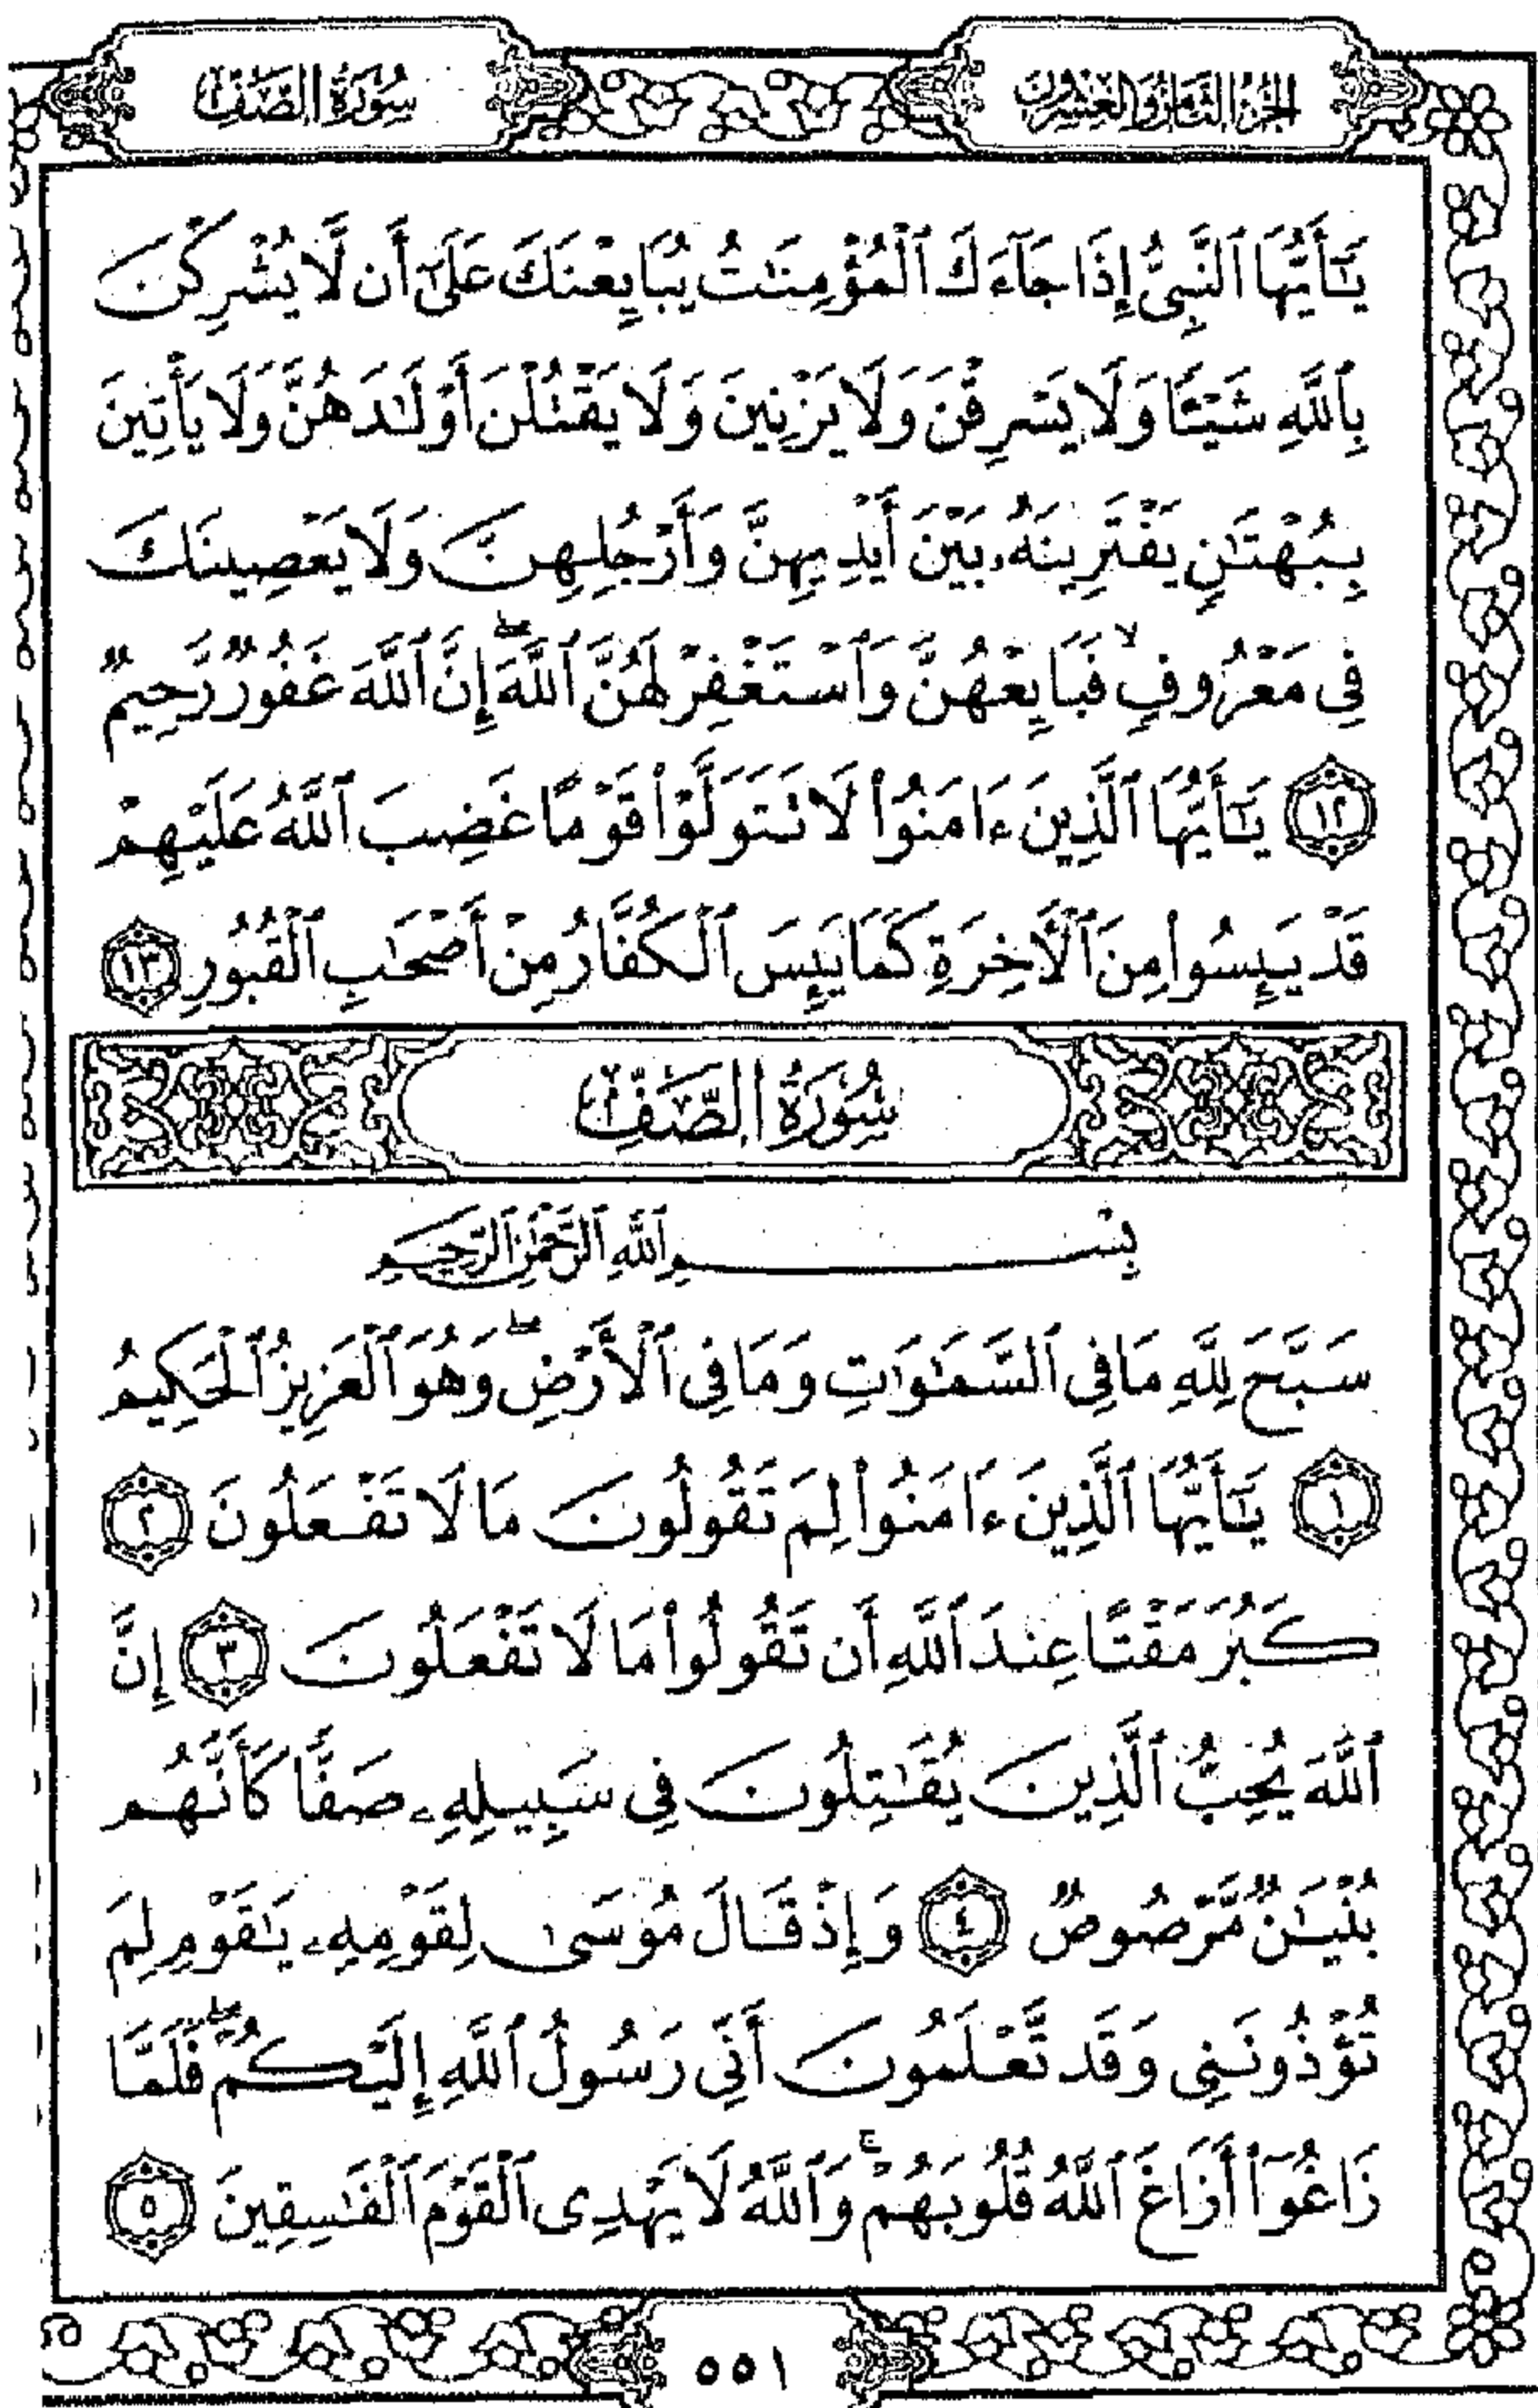 الجزء الثامن والعشرون
سورة الصف
يَٰٓأَيُّهَا ٱلنَّبِىُّ إِذَا جَآءَكَ ٱلْمُؤْمِنَٰتُ يُبَايِعْنَكَ عَلَىٰٓ أَن لَّا يُشْرِكْنَ
بِٱللَّهِ شَيْـًٔا وَلَا يَسْرِقْنَ وَلَا يَزْنِينَ وَلَا يَقْتُلْنَ أَوْلَٰدَهُنَّ وَلَا يَأْتِينَ
بِبُهْتَٰنٍ يَفْتَرِينَهُۥ بَيْنَ أَيْدِيهِنَّ وَأَرْجُلِهِنَّ وَلَا يَعْصِينَكَ
فِى مَعْرُوفٍ ۙ فَبَايِعْهُنَّ وَٱسْتَغْفِرْ لَهُنَّ ٱللَّهَ ۖ إِنَّ ٱللَّهَ غَفُورٌ رَّحِيمٌ
١٢ يَٰٓأَيُّهَا ٱلَّذِينَ ءَامَنُوا۟ لَا تَتَوَلَّوْا۟ قَوْمًا غَضِبَ ٱللَّهُ عَلَيْهِمْ
قَدْ يَئِسُوا۟ مِنَ ٱلْأَخِرَةِ كَمَا يَئِسَ ٱلْكُفَّارُ مِنْ أَصْحَٰبِ ٱلْقُبُورِ ١٣
سُورَةُ الصَّفِّ
بِسْمِ ٱللَّهِ ٱلرَّحْمَٰنِ ٱلرَّحِيمِ
سَبَّحَ لِلَّهِ مَا فِى ٱلسَّمَٰوَٰتِ وَمَا فِى ٱلْأَرْضِ ۖ وَهُوَ ٱلْعَزِيزُ ٱلْحَكِيمُ
١ يَٰٓأَيُّهَا ٱلَّذِينَ ءَامَنُوا۟ لِمَ تَقُولُونَ مَا لَا تَفْعَلُونَ ٢
كَبُرَ مَقْتًا عِندَ ٱللَّهِ أَن تَقُولُوا۟ مَا لَا تَفْعَلُونَ ٣ إِنَّ
ٱللَّهَ يُحِبُّ ٱلَّذِينَ يُقَٰتِلُونَ فِى سَبِيلِهِۦ صَفًّا كَأَنَّهُم
بُنْيَٰنٌ مَّرْصُوصٌ ٤ وَإِذْ قَالَ مُوسَىٰ لِقَوْمِهِۦ يَٰقَوْمِ لِمَ
تُؤْذُونَنِى وَقَد تَّعْلَمُونَ أَنِّى رَسُولُ ٱللَّهِ إِلَيْكُمْ ۖ فَلَمَّا
زَاغُوٓا۟ أَزَاغَ ٱللَّهُ قُلُوبَهُمْ ۚ وَٱللَّهُ لَا يَهْدِى ٱلْقَوْمَ ٱلْفَٰسِقِينَ ٥
٥٥١